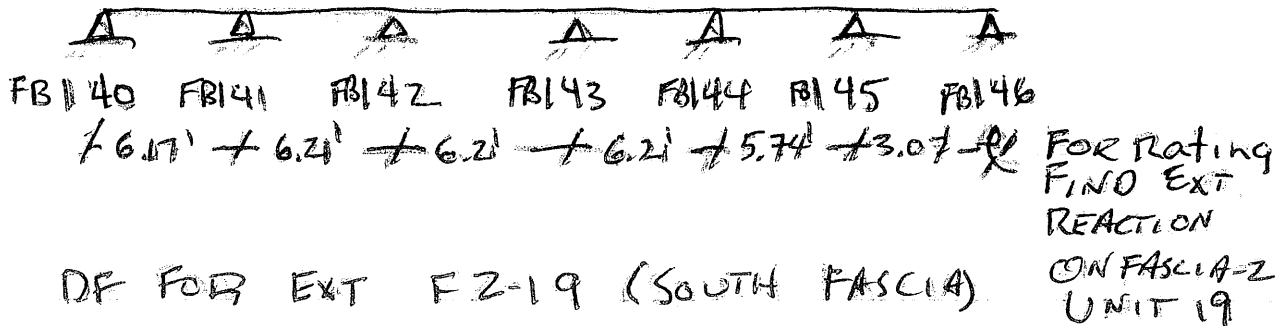 FB140 FB141 FB142 FB143 FB144 FB145 FB146
6.17' 6.21' 6.21 6.21 5.74' 3.07
FOR Rating
FIND EXT
REACTION
ON FASCIA-2
UNIT 19
DF FOR EXT F2-19 (SOUTH FASCIA)